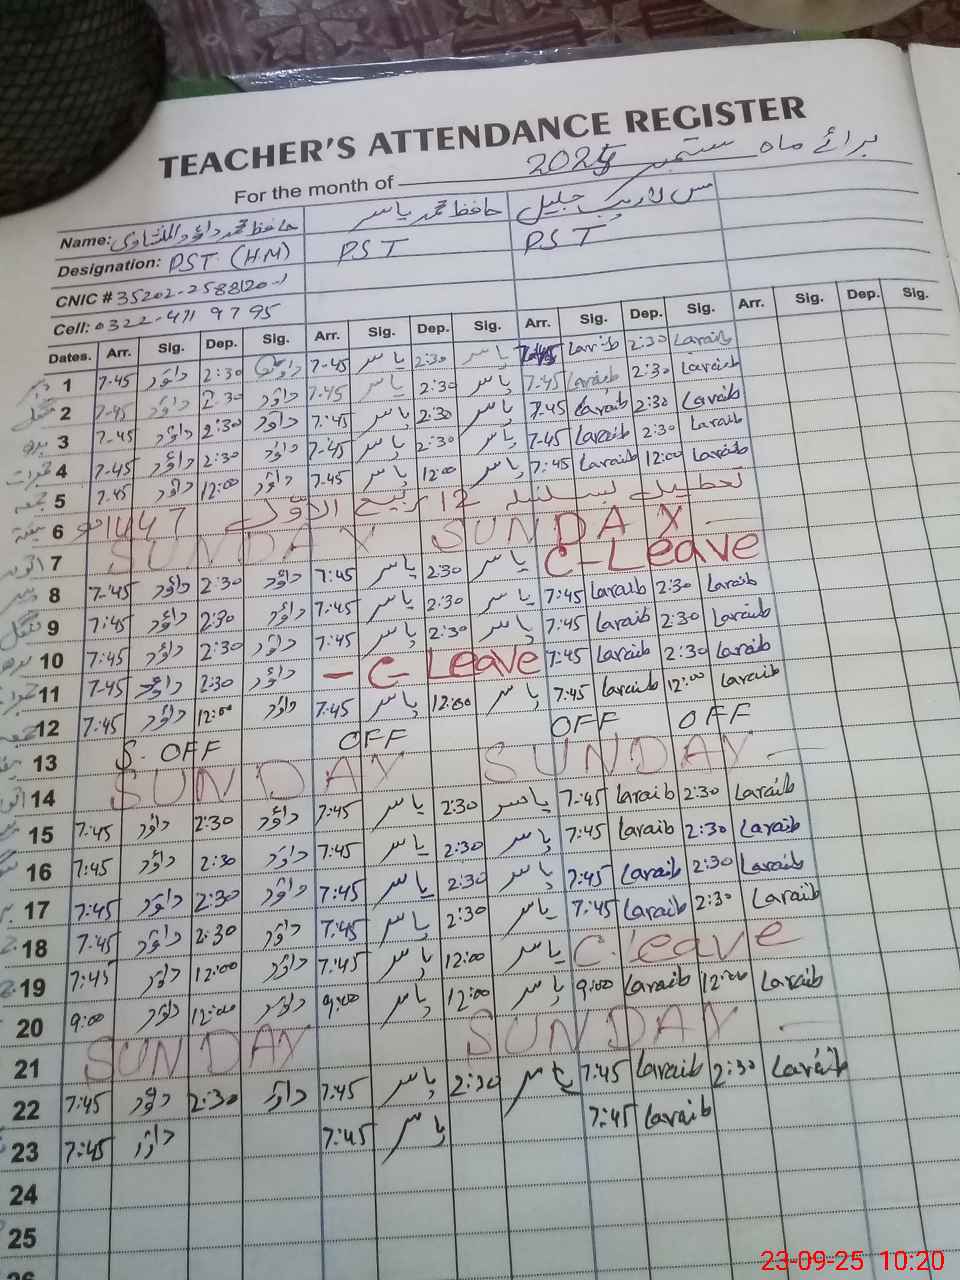 TEACHER'S ATTENDANCE REGISTER
For the month of 2025 برائے ماہ ستمبر
Name: حافظ محمد داؤد حافظ محمد یاسر مس لاریب جلیل
Designation: PST (H.M) PST PST
CNIC # 35202-2588120-1
Cell: 0322-471 9795
Dates. Arr. Sig. Dep. Sig. Arr. Sig. Dep. Sig. Arr. Sig. Dep. Sig. Arr. Sig. Dep. Sig.
1 7-45 داؤد 2:30 داؤد 7-45 یاسر 2:30 یاسر 7:45 Laraib 2:30 Laraib
منگل 2 7-45 داؤد 2:30 داؤد 7-45 یاسر 2:30 یاسر 7:45 Laraib 2:30 Laraib
بدھ 3 7-45 داؤد 2:30 داؤد 7:45 یاسر 2:30 یاسر 7:45 Laraib 2:30 Laraib
جمعرات 4 7-45 داؤد 2:30 داؤد 7-45 یاسر 2:30 یاسر 7-45 Laraib 2:30 Laraib
جمعہ 5 7-45 داؤد 12:00 داؤد 7-45 یاسر 12:00 یاسر 7:45 Laraib 12:00 Laraib
ہفتہ 6 تعطیل بسلسلہ 12 ربیع الاوّل 1447
اتوار 7 SUNDAY SUNDAY
پیر 8 7-45 داؤد 2:30 داؤد 7:45 یاسر 2:30 یاسر C-Leave
منگل 9 7:45 داؤد 2:30 داؤد 7:45 یاسر 2:30 یاسر 7:45 Laraib 2:30 Laraib
بدھ 10 7:45 داؤد 2:30 داؤد 7:45 یاسر 2:30 یاسر 7:45 Laraib 2:30 Laraib
11 7-45 داؤد 2:30 داؤد - C-Leave 7:45 Laraib 2:30 Laraib
جمعہ 12 7:45 داؤد 12:00 داؤد 7:45 یاسر 12:00 یاسر 7:45 Laraib 12:00 Laraib
13 S. OFF OFF OFF OFF
14 SUNDAY SUNDAY
15 7:45 داؤد 2:30 داؤد 7:45 یاسر 2:30 یاسر 7:45 Laraib 2:30 Laraib
16 7:45 داؤد 2:30 داؤد 7:45 یاسر 2:30 یاسر 7:45 Laraib 2:30 Laraib
17 7:45 داؤد 2:30 داؤد 7:45 یاسر 2:30 یاسر 7:45 Laraib 2:30 Laraib
18 7:45 داؤد 2:30 داؤد 7:45 یاسر 2:30 یاسر 7:45 Laraib 2:30 Laraib
19 7:45 داؤد 12:00 داؤد 7:45 یاسر 12:00 یاسر C.leave
20 9:00 داؤد 12:00 داؤد 9:00 یاسر 12:00 یاسر 9:00 Laraib 12:00 Laraib
21 SUNDAY SUNDAY
22 7:45 داؤد 2:30 داؤد 7:45 یاسر 2:30 یاسر 7:45 Laraib 2:30 Laraib
23 7:45 داؤد 7:45 یاسر 7:45 Laraib
24
25
23-09-25 10:20